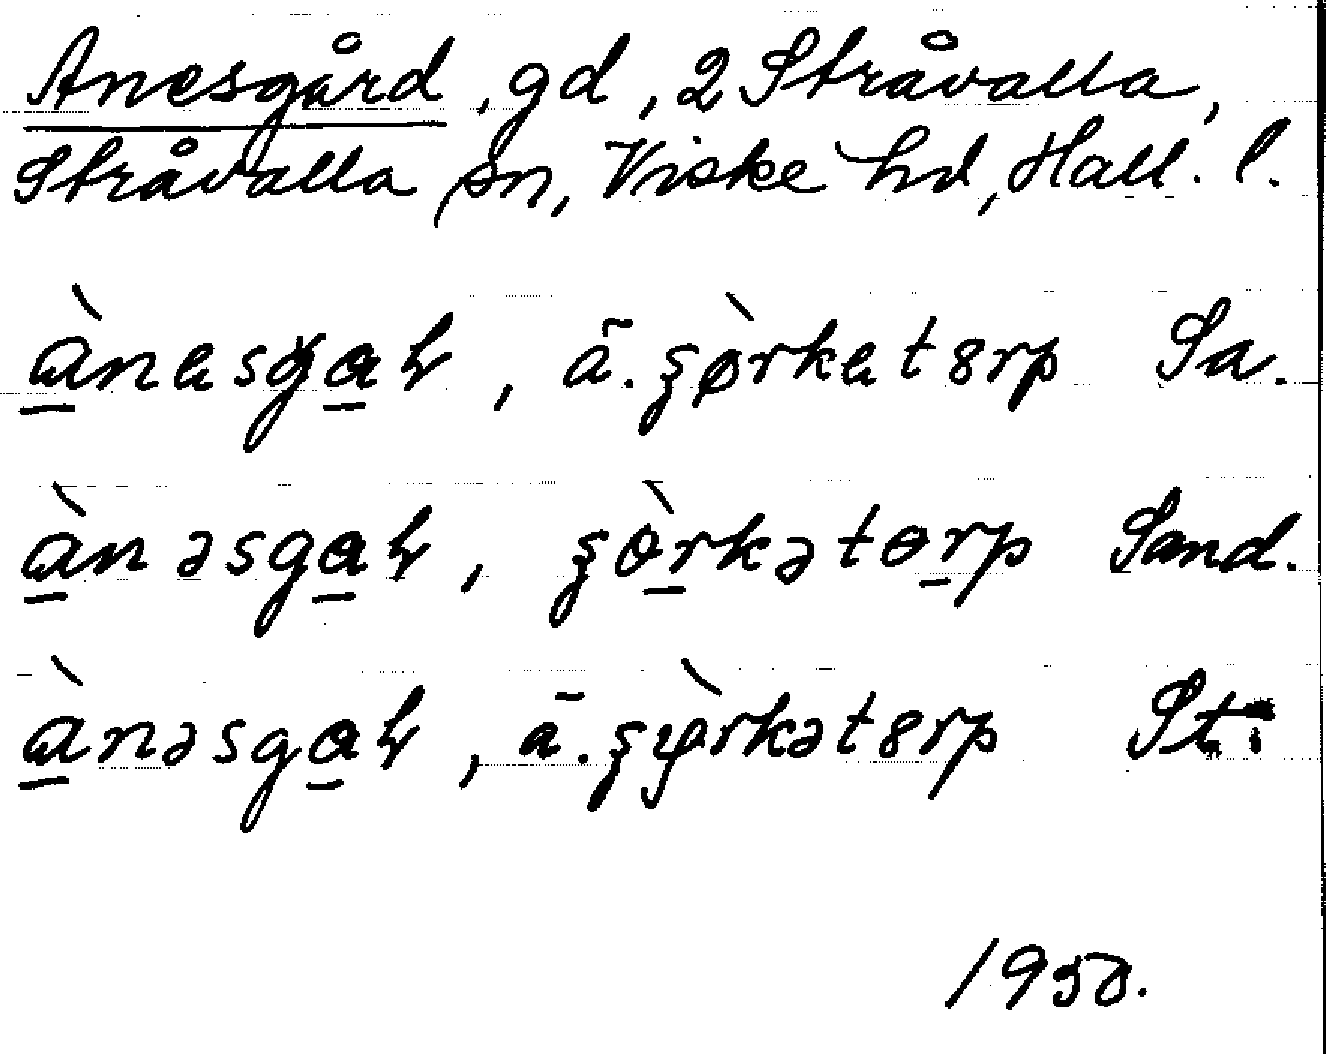 Anesgård, gd, 2 Stråvalla,
Stråvalla sn, Viske hd, Hall. l.
ànesgaɦ, ā. ʂørkatɞrp Sa.
ànəsgaɦ, ʂòrkətorp Sand.
ànəsgaɦ, ā. ʂørkətɞrp St.
1950.